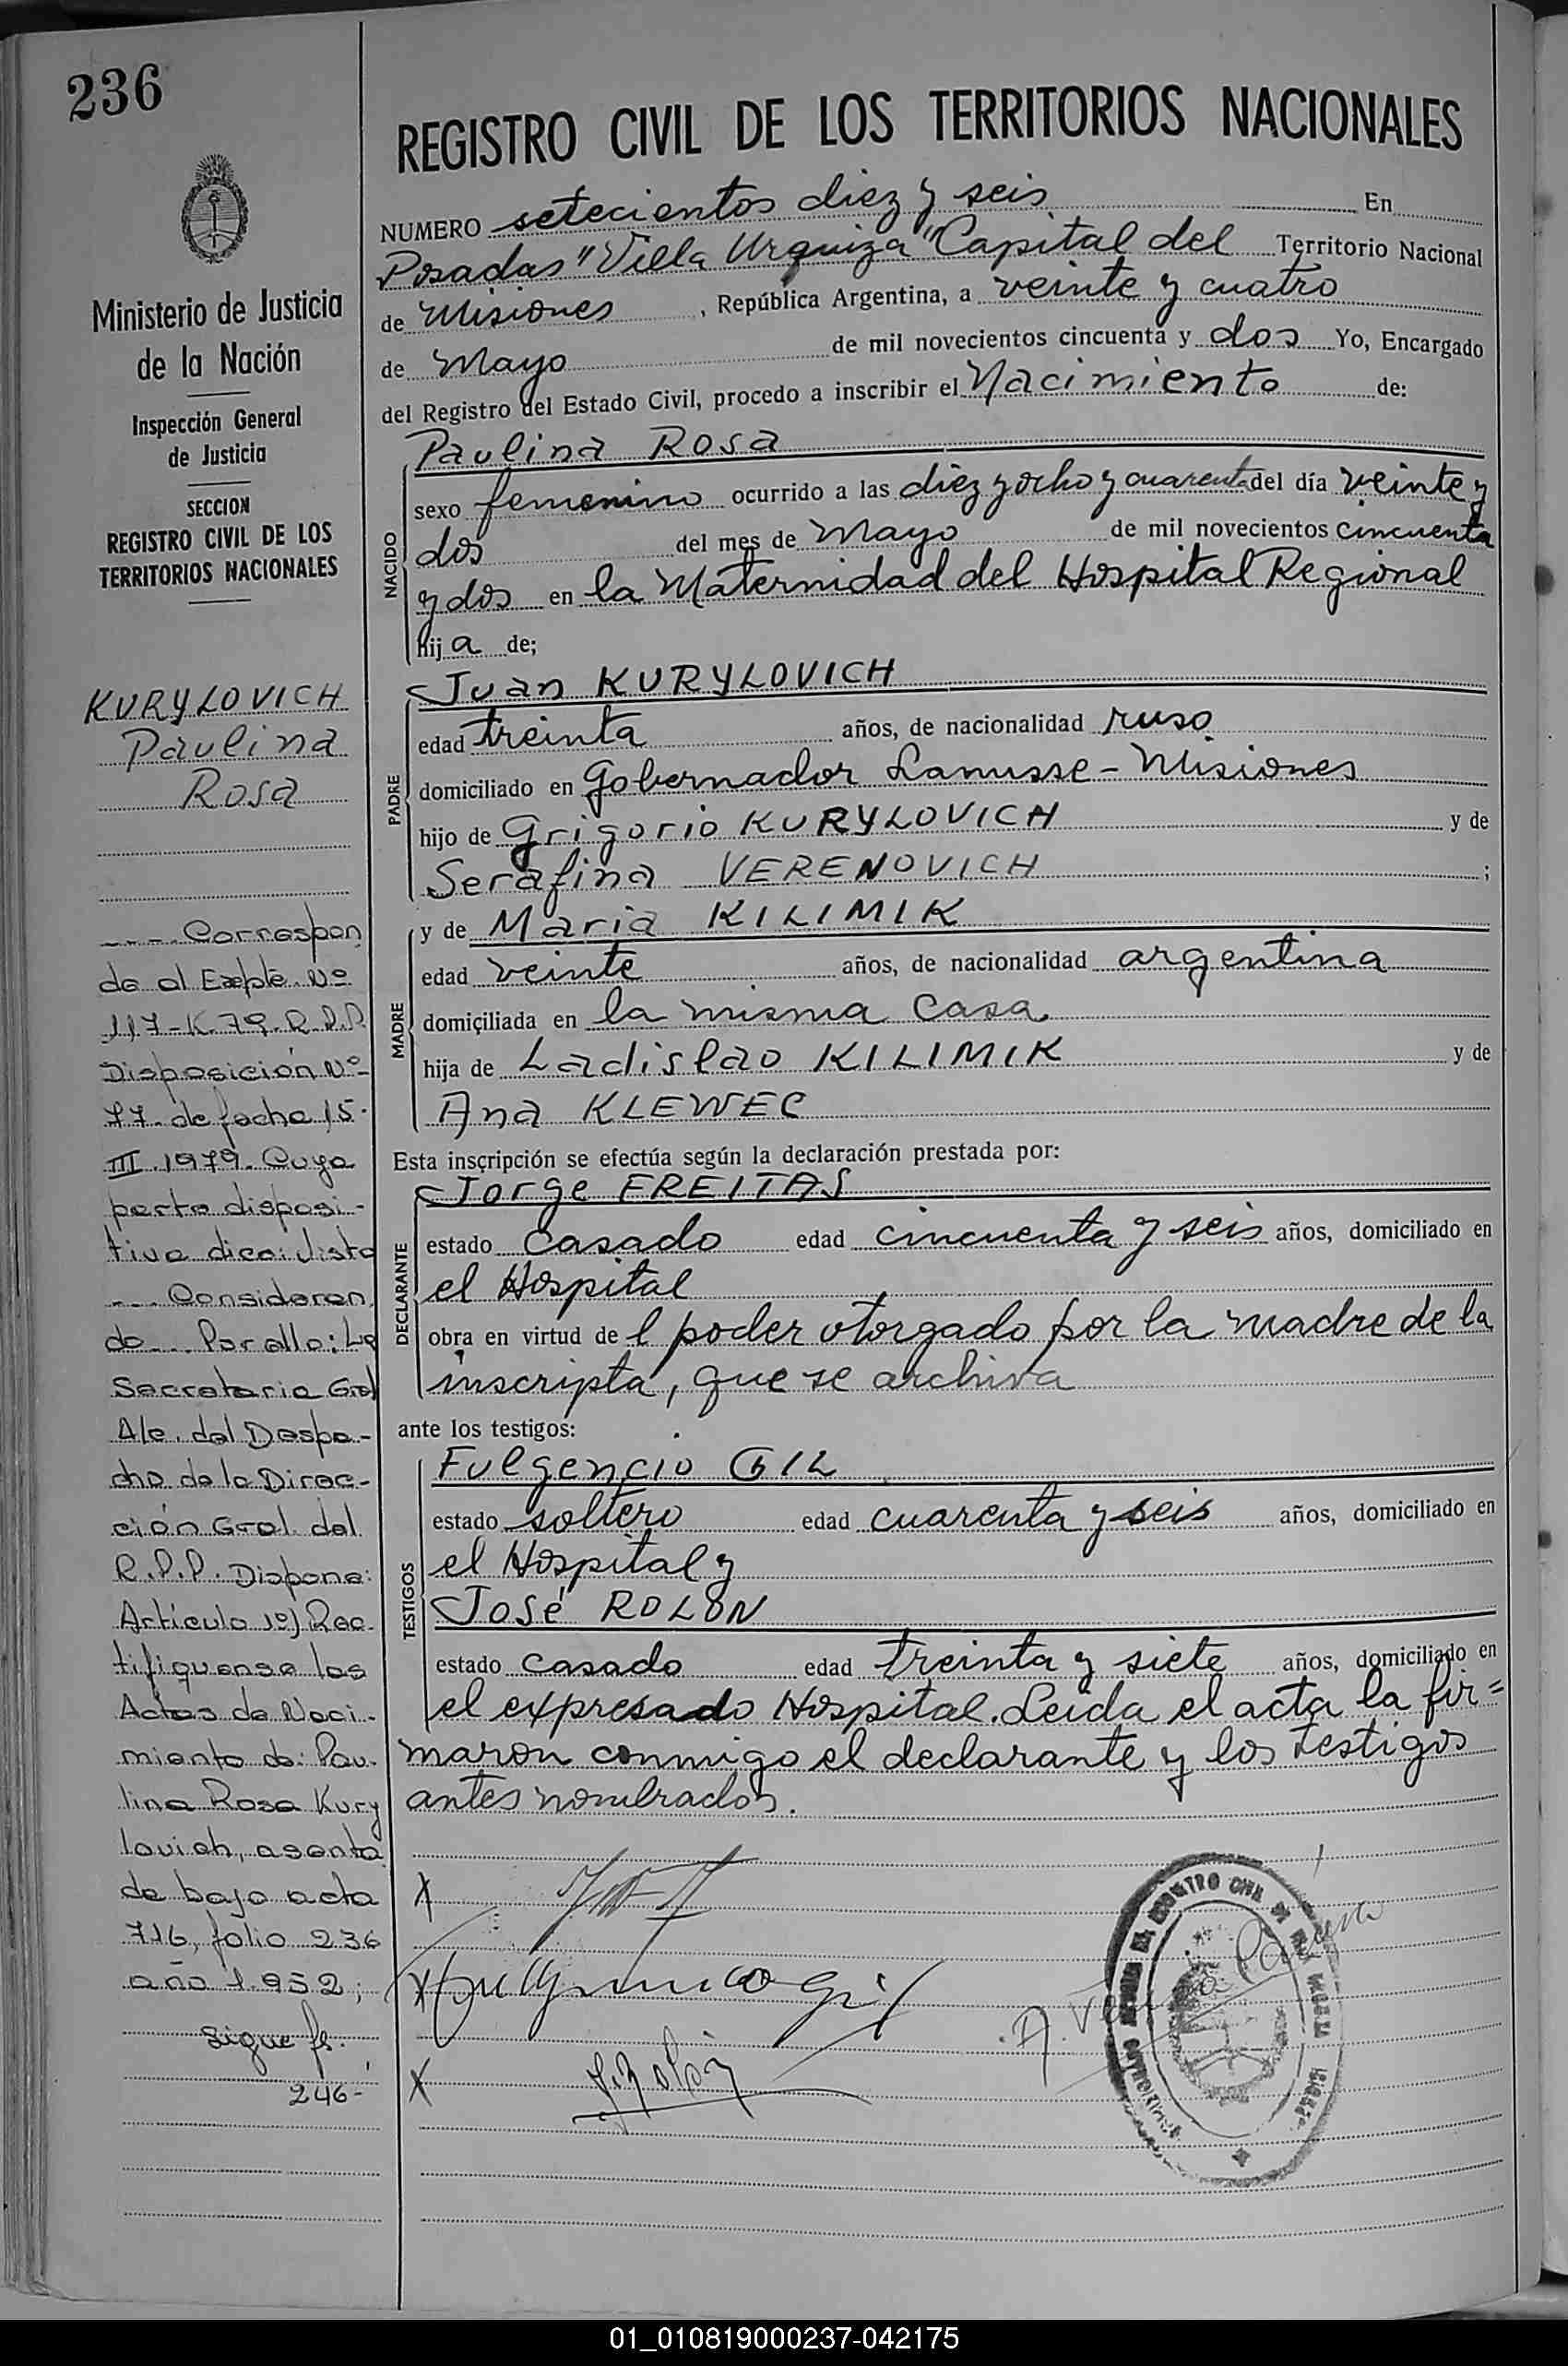 236
REGISTRO CIVIL DE LOS TERRITORIOS NACIONALES
NUMERO setecientos diez y seis En
Posadas "Villa Urquiza" Capital del Territorio Nacional
de Misiones, República Argentina, a veinte y cuatro
de Mayo de mil novecientos cincuenta y dos Yo, Encargado
del Registro del Estado Civil, procedo a inscribir el Nacimiento de:
Paulina Rosa
sexo femenino ocurrido a las diez y ocho y cuarenta del día veinte y
dos del mes de Mayo de mil novecientos cincuenta
y dos en la Maternidad del Hospital Regional
hija de;
NACIDO
Juan KURYLOVICH
edad treinta años, de nacionalidad ruso
domiciliado en Gobernador Lanusse - Misiones
hijo de Grigorio KURYLOVICH y de
Serafina VERENOVICH ;
PADRE
y de Maria KILIMIK
edad veinte años, de nacionalidad argentina
domiciliada en la misma casa
hija de Ladislao KILIMIK y de
Ana KLEWEC
MADRE
Esta inscripción se efectúa según la declaración prestada por:
Jorge FREITAS
estado casado edad cincuenta y seis años, domiciliado en
el Hospital
obra en virtud del poder otorgado por la madre de la
inscripta, que se archiva
DECLARANTE
ante los testigos:
Fulgencio GIL
estado soltero edad cuarenta y seis años, domiciliado en
el Hospital y
José ROLON
estado casado edad treinta y siete años, domiciliado en
el expresado Hospital. Leida el acta la fir=
TESTIGOS
maron conmigo el declarante y los testigos
antes nombrados.
X
X Fulgencio Gil
X J. Rolón
Ministerio de Justicia
de la Nación
Inspección General
de Justicia
SECCION
REGISTRO CIVIL DE LOS
TERRITORIOS NACIONALES
KURYLOVICH
Paulina
Rosa
---- Correspon
de al Expte. Nº
117-K-79-R.P.P.
Disposición Nº
77. de fecha 15.
III. 1979. Cuya
parte disposi-
tiva dice: Visto
--- Consideran
do... Por ello: La
Secretaria Gral
A/c. del Despa-
cho de la Direc-
ción Gral. del
R.P.P. Dispone:
Artículo 1º) Rec-
tifiquense las
Actas de Naci-
miento de: Pau-
lina Rosa Kury
lovich, asenta
da bajo acta
716, folio 236
año 1.952;
sigue fs.
246-
01_010819000237-042175